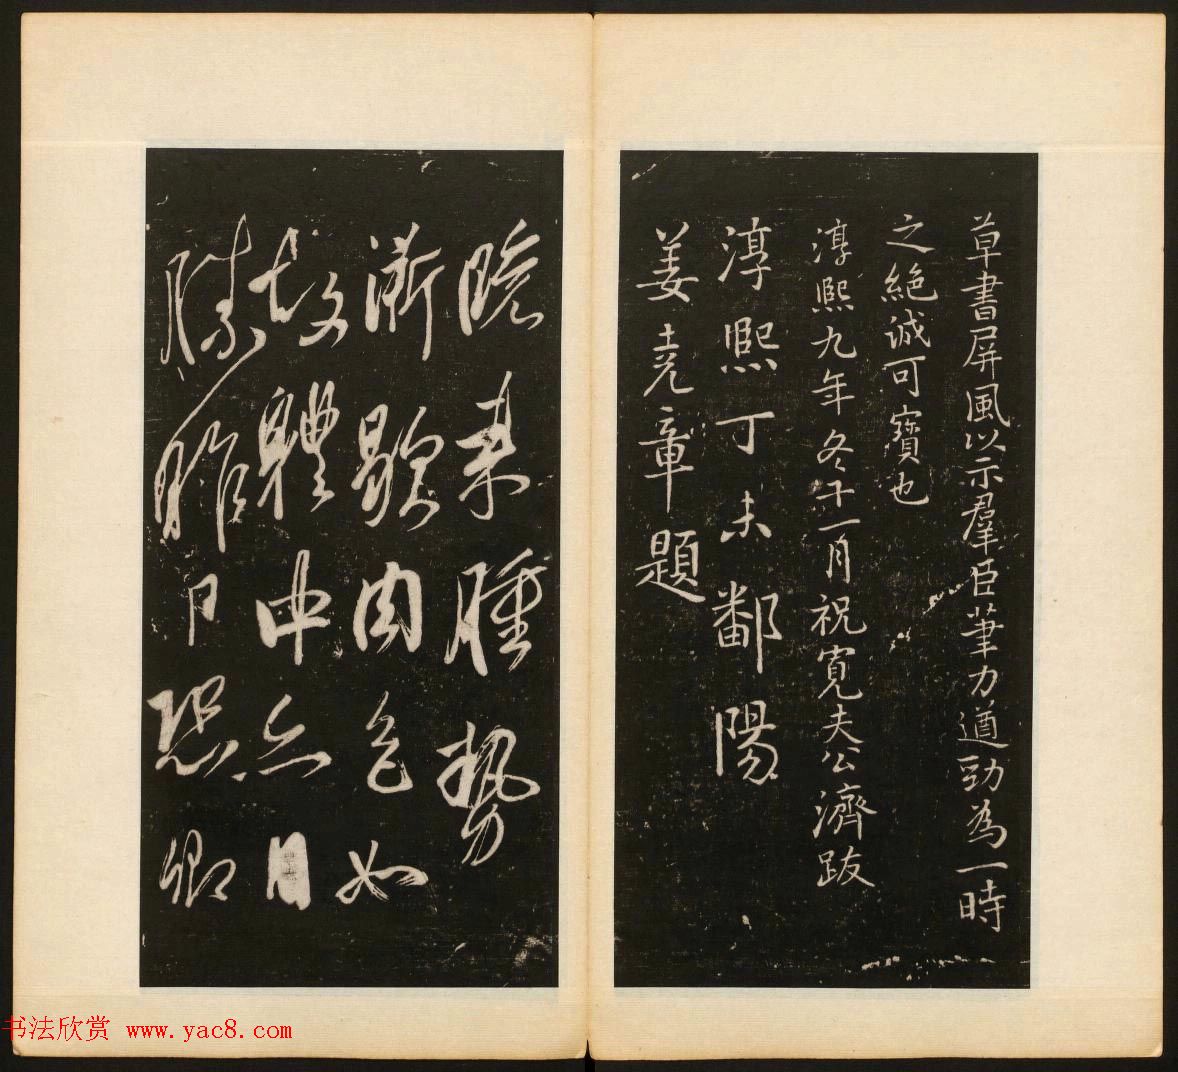 草書屏風以示羣臣筆力遒勁為一時
之絕誠可寶也
淳熙九年冬十一月祝寬夫公濟跋
淳熙丁未鄱陽
姜堯章題
臉未腫勢
漸歇肉色如
故體中亦日
勝昨日恐卿
书法欣赏 www.yac8.com